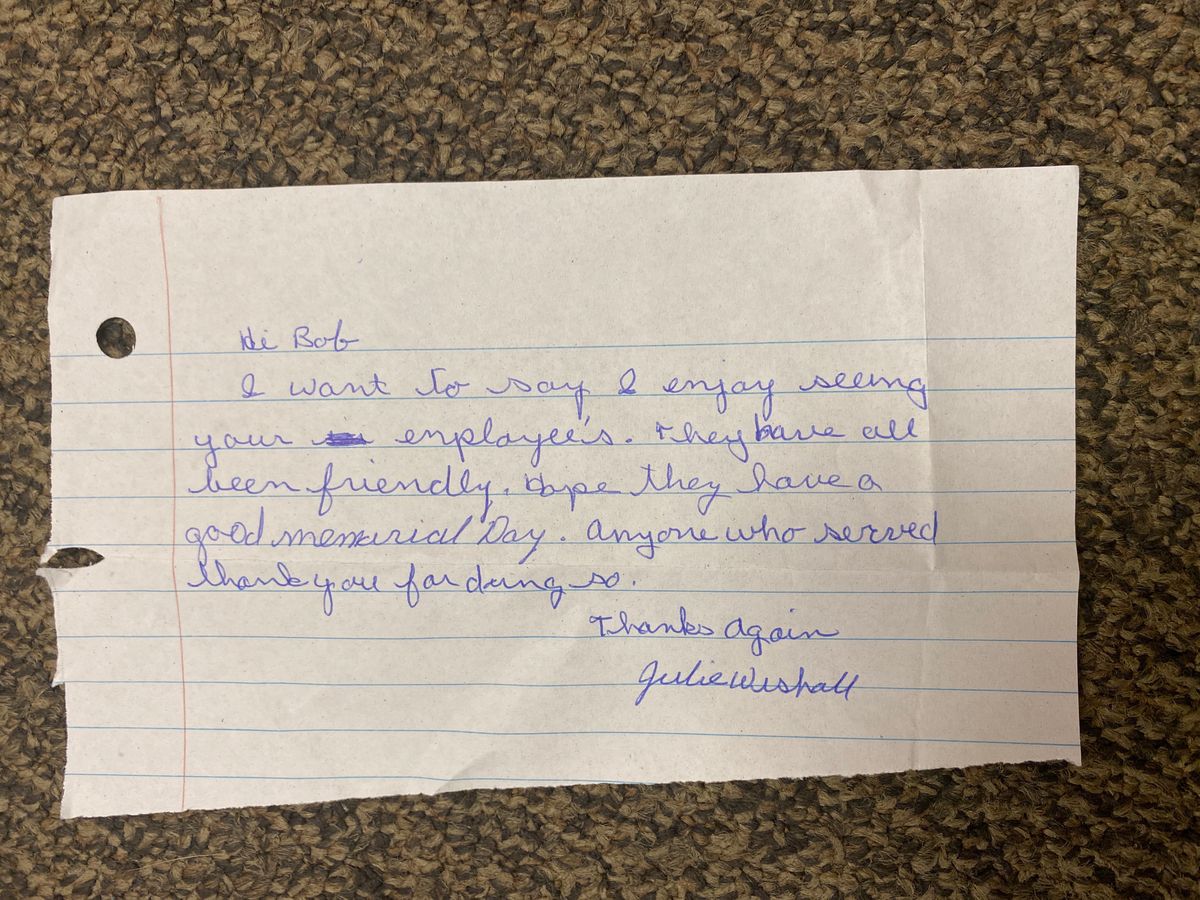 Hi Bob
I want to say I enjoy seeing
your employee's. They have all
been friendly. Hope they have a
good memorial Day. Anyone who served
thank you for doing so.
Thanks Again
Julie